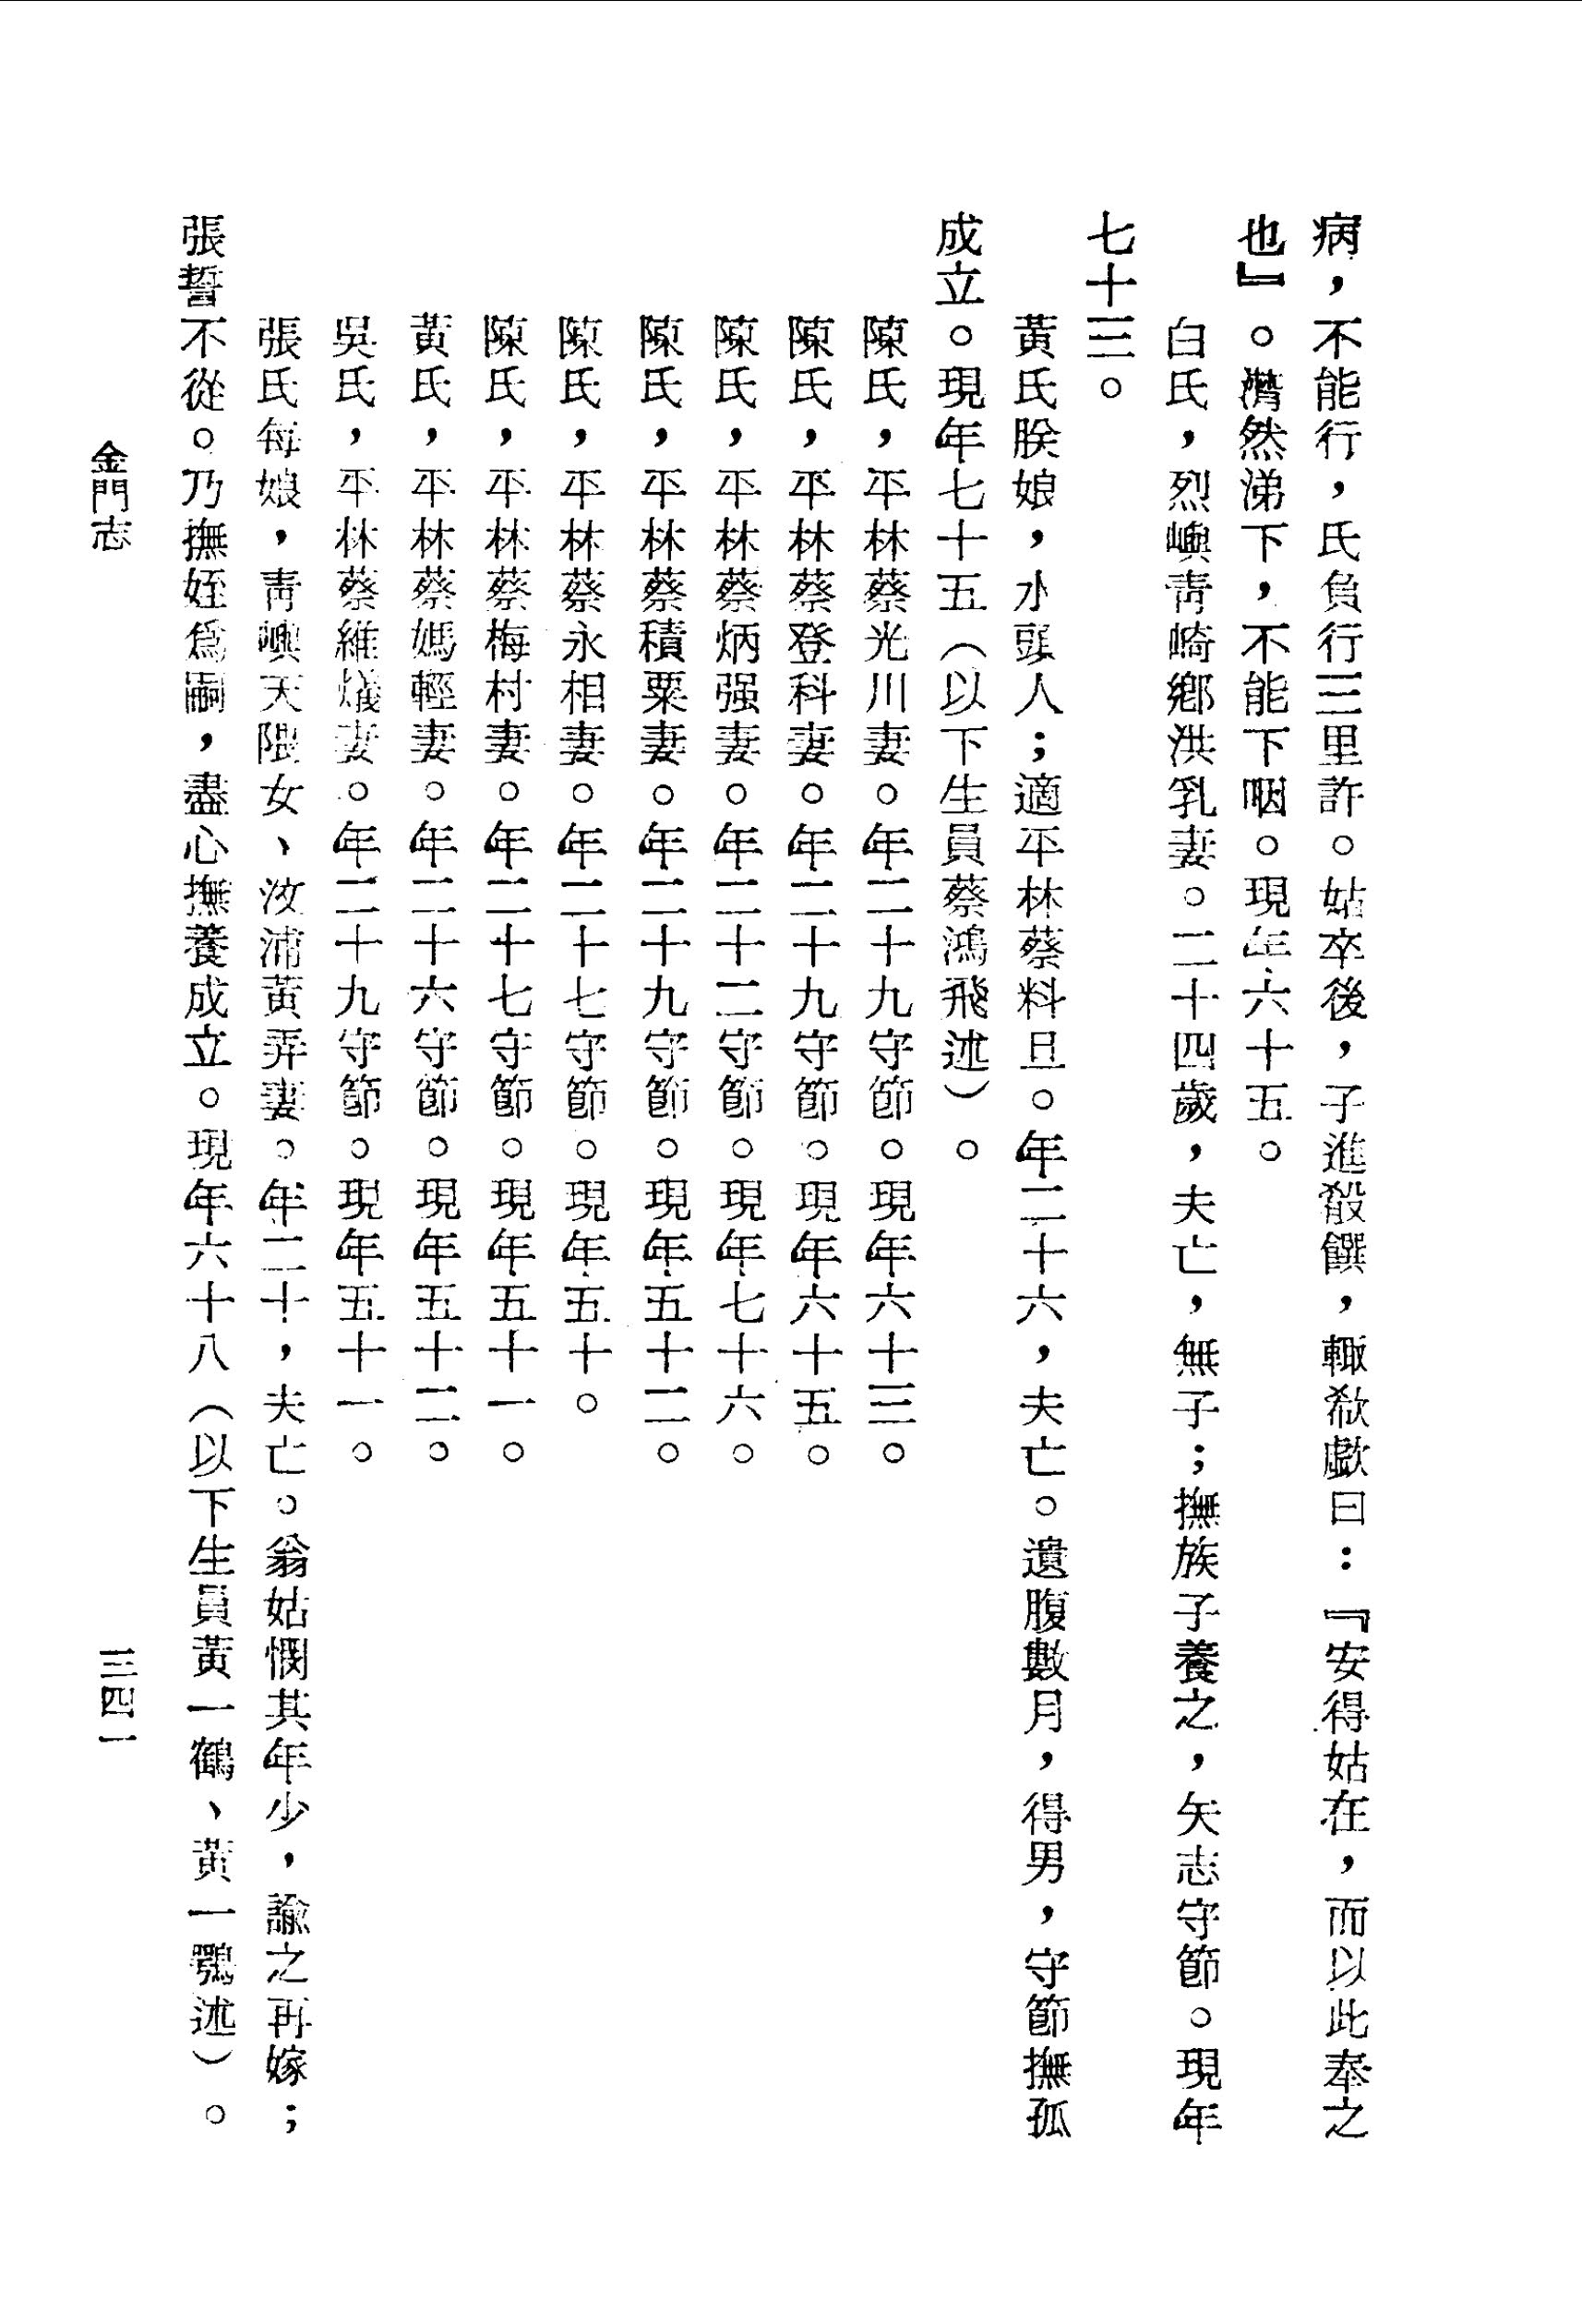 病，不能行，氏負行三里許。姑卒後，子進殽饌，輒欷歔曰：『安得姑在，而以此奉之
也』。潸然涕下，不能下咽。現年六十五。
白氏，烈嶼青崎鄉洪乳妻。二十四歲，夫亡，無子；撫族子養之，矢志守節。現年
七十三。
黃氏朕娘，水頭人；適平林蔡料旦。年二十六，夫亡。遺腹數月，得男，守節撫孤
成立。現年七十五（以下生員蔡鴻飛述）。
陳氏，平林蔡光川妻。年二十九守節。現年六十三。
陳氏，平林蔡登科妻。年二十九守節。現年六十五。
陳氏，平林蔡炳强妻。年二十二守節。現年七十六。
陳氏，平林蔡積粟妻。年二十九守節。現年五十二。
陳氏，平林蔡永相妻。年二十七守節。現年五十。
陳氏，平林蔡梅村妻。年二十七守節。現年五十一。
黃氏，平林蔡媽輕妻。年二十六守節。現年五十二。
吳氏，平林蔡維㸌妻。年二十九守節。現年五十一。
張氏每娘，青嶼天隈女、汶浦黃弄妻。年二十，夫亡。翁姑憫其年少，諭之再嫁；
張誓不從。乃撫姪爲嗣，盡心撫養成立。現年六十八（以下生員黃一鶴、黃一鶚述）。
金門志
三四一